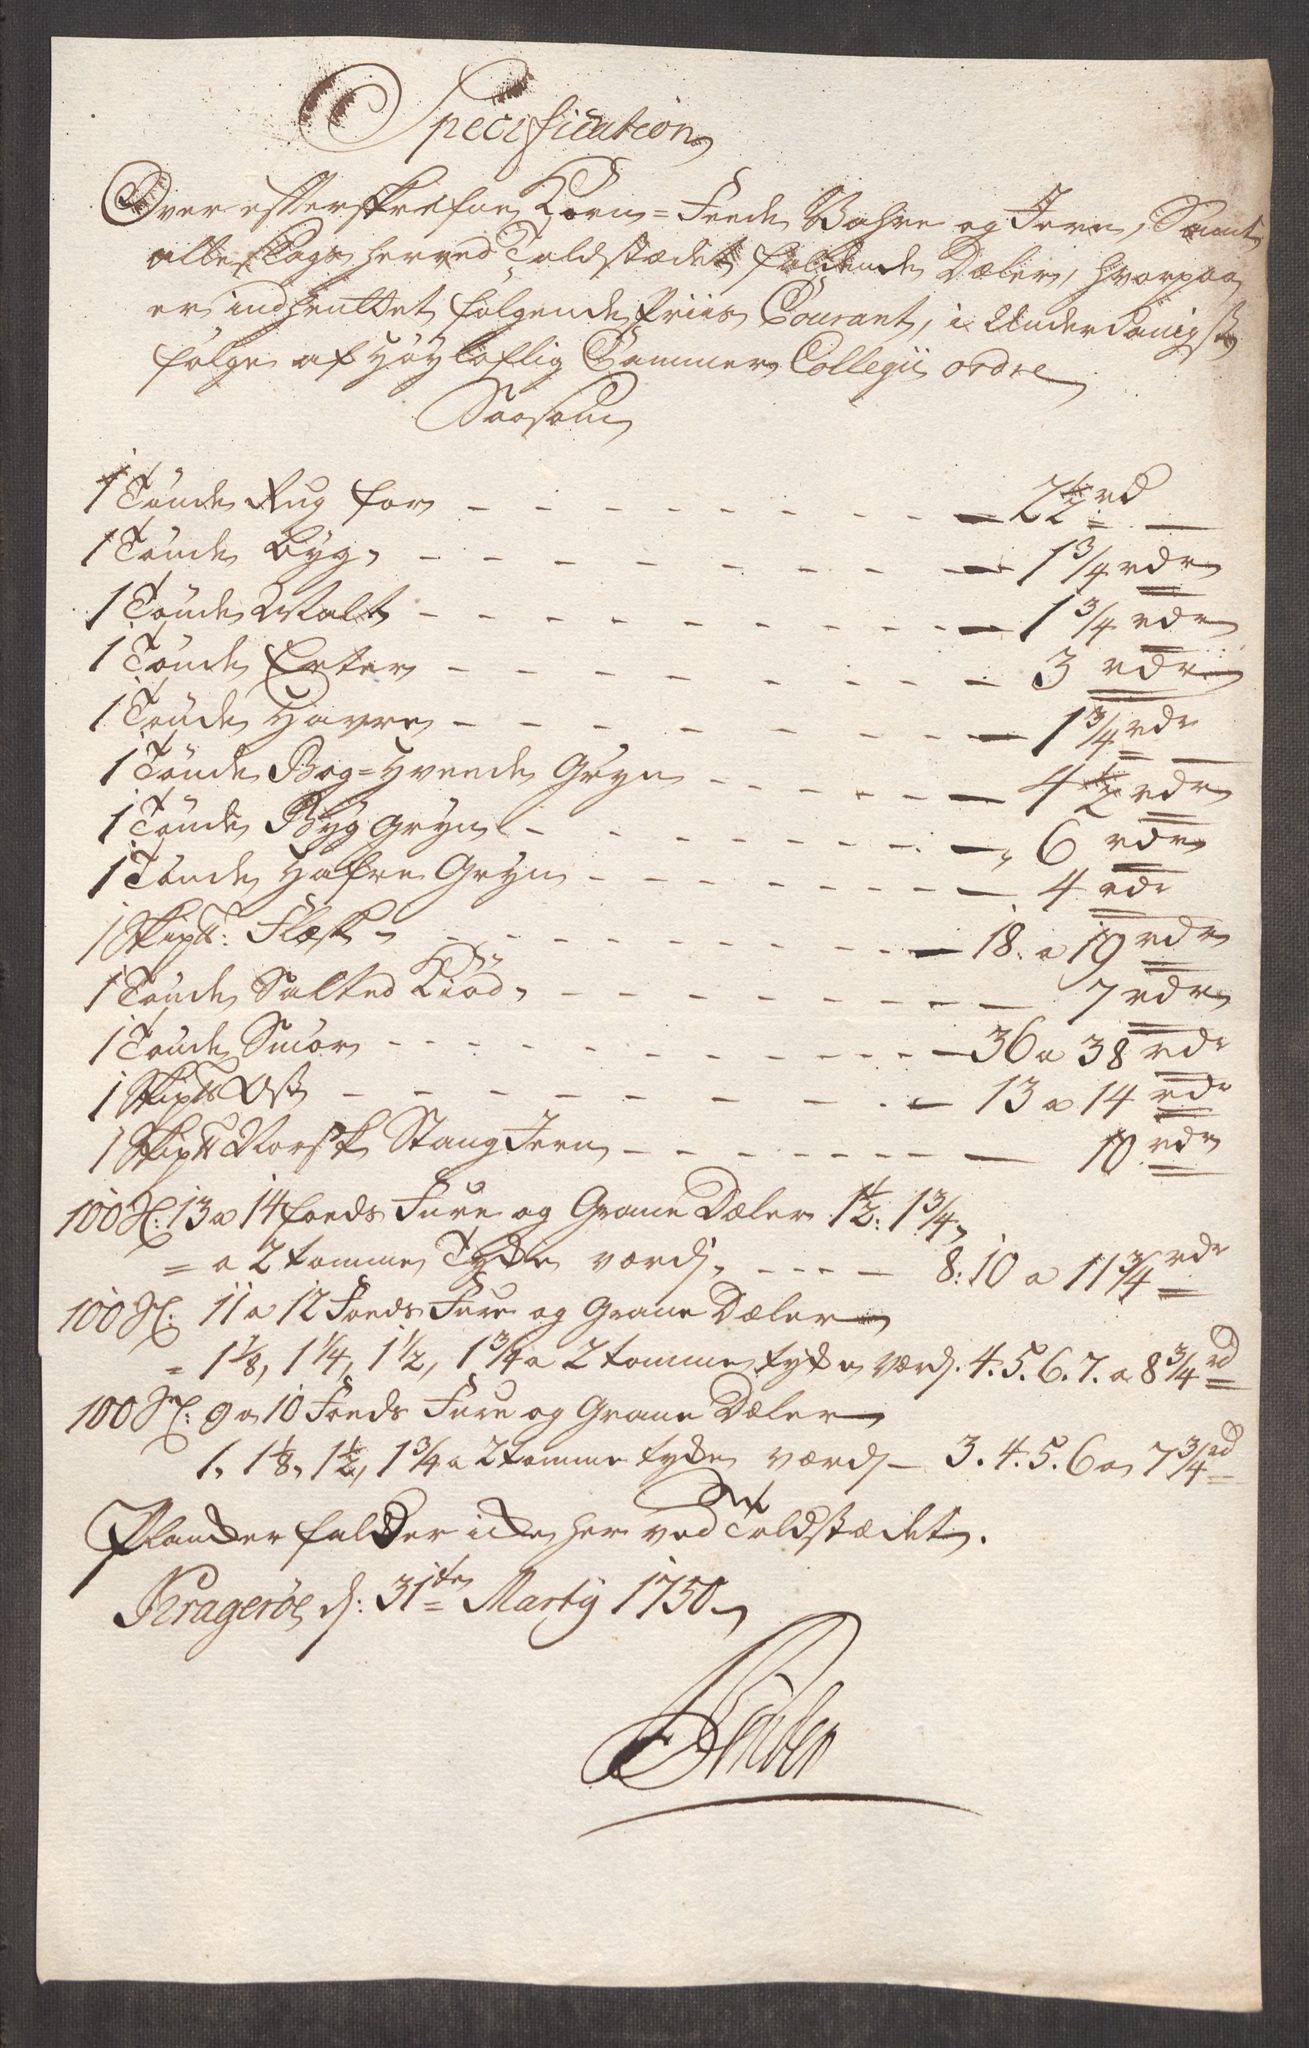 Specification
Over efterskrefne Korn= Feede Vahre og Jern, Samt
alle slags herved Toldstædet faldende Dæler, hvorpaa
er indhentet følgende Priis Courant, i Underdanigst
følge af Høyloflig Cammer Collegii ordre
Saasom
1 Tønde Rug for - - - - - - - 2 1/2 rd
1 Tønde Byg - - - - - - - 1 3/4 rdr
1 Tønde Malt - - - - - - - 1 3/4 rdr
1 Tønde Erter - - - - - - - 3 rdr
1 Tønde Havre - - - - - - - 1 3/4 rdr
1 Tønde Bog=Hveede Gryn - - - - - 4 1/2 rdr
1 Tønde Byg Gryn - - - - - - 6 rdr
1 Tønde Hafre Gryn - - - - - - 4 rdr
1 Skip℔: Flæsk - - - - - - - 18. a 19 rdr
1 Tønde Salted Kiød - - - - - - 7 rdr
1 Tønde Smør - - - - - - - 36 a 38 rdr
1 Skip℔ Ost - - - - - - - 13 a 14 rdr
1 Skip℔ Norsk Stang Jern - - - - - - 10 rdr
100 St: 13 a 14 foeds Fure og Grane Dæler 1 1/2: 1 3/4
= a 2 tomme Tyke værdj - - - - 8: 10 a 11 3/4 rdr
100 St: 11 a 12 Foeds Fure og Grane Dæler
= 1 1/8, 1 1/4, 1 1/2, 1 3/4 a 2 tomme tyke værdj. 4. 5. 6. 7. a 8 3/4 rd
100 St: 9 a 10 Foeds Fure og Grane Dæler
1, 1 1/8, 1 1/2, 1 3/4 a 2 tomme tyke værdj - 3. 4. 5. 6 a 7 3/4 rd
Planker falder icke her ved Toldstædet.
Kragerøe dj: 31te Martij 1750